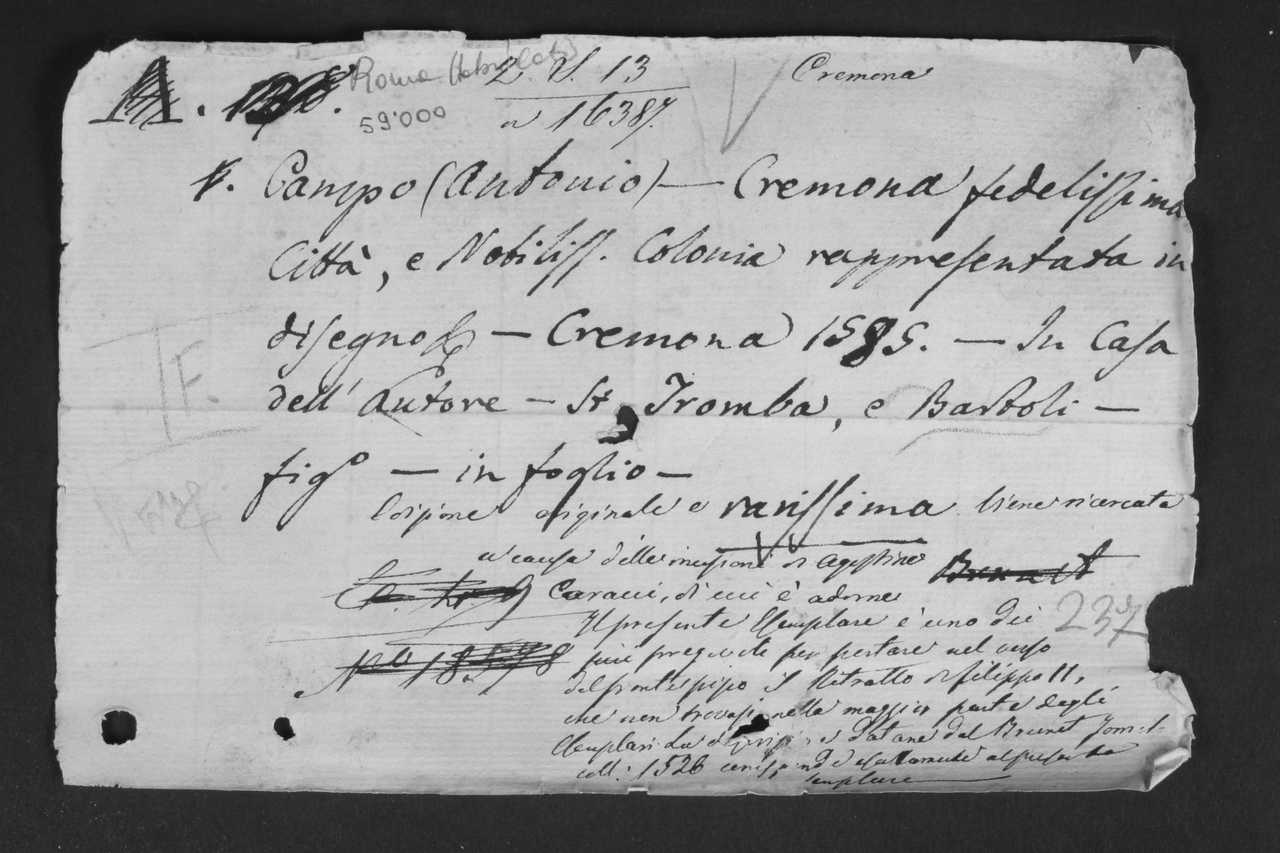 A. Roma 2. V. 13 Cremona
59.000 16387.
Campo (Antonio) — Cremona fedelissima
Città, e Nobiliss. Colonia rappresentata in
disegno — Cremona 1585. — In Casa
dell' Autore — Tromba, e Bartoli —
F.
fig.º — in foglio —
Edizione originale e rarissima. Viene ricercata
a causa delle incisioni di Agostino Brunet
Caracci, di cui è adorna
Il presente Esemplare è uno dei 237
più pregevoli per portare nel verso
del frontespizio il Ritratto di Filippo II,
che non trovasi nella maggior parte degli
Esemplari. La data ne dal Brunet
coll.: 1526 esattamente al presente
Esemplare